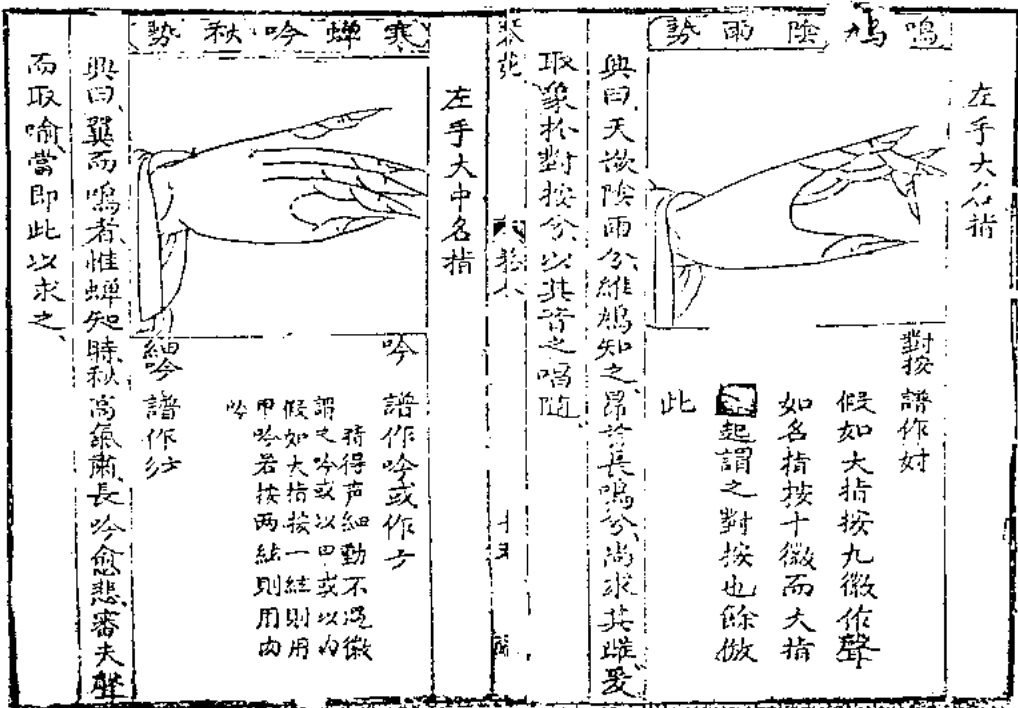 鳴鳩隂雨勢
左手大名指
對按 譜作对
假如大指按九徽作聲
如名指按十徽而大指
起謂之對按也餘倣
此
興曰天欲隂雨兮維鳩知之昂首長鳴兮尚求其雌爰
取象扵對按兮以其音之唱隨
寒蟬吟秋勢
左手大中名指
吟 譜作吟或作亇
猗得声細動不過徽
謂之吟或以甲或以肉
假如大指按一絃則用
甲吟若按两絃則用肉
吟
細吟 譜作
興曰翼而鳴者惟蟬知時秋高氣肅長吟愈悲審夫聲
而取喻當即此以求之